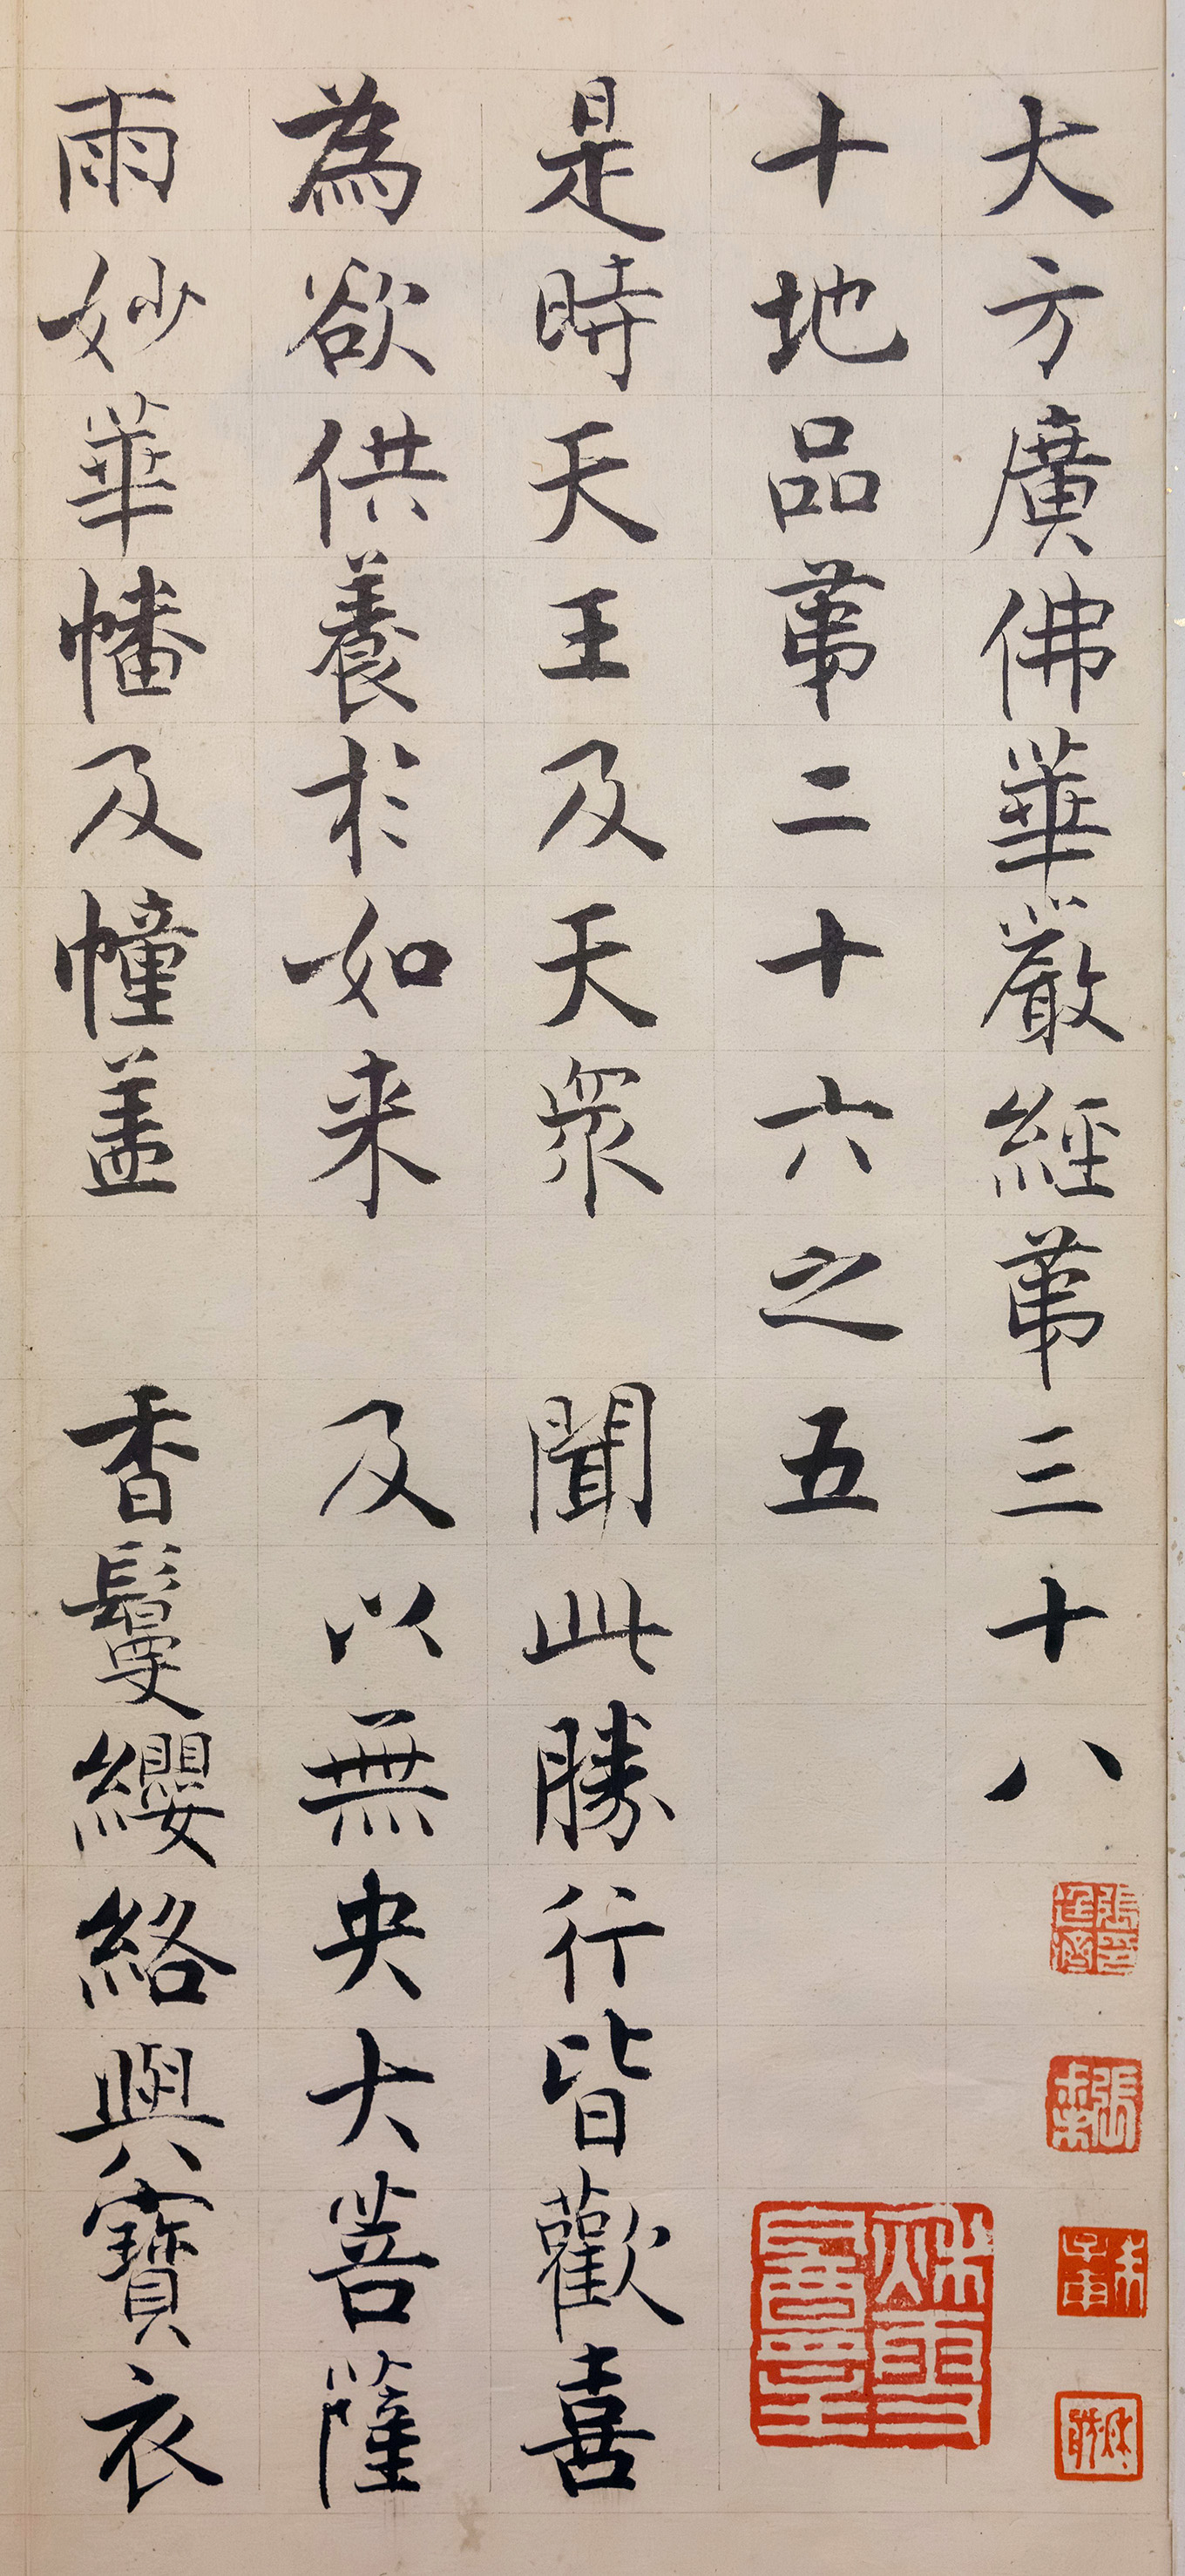 大方廣佛華嚴經苐三十八
十地品苐二十六之五
是時天王及天衆　聞此勝行皆歡喜
為欲供養於如来　及以無央大菩薩
雨妙華幡及幢盖　香鬘纓絡與寶衣